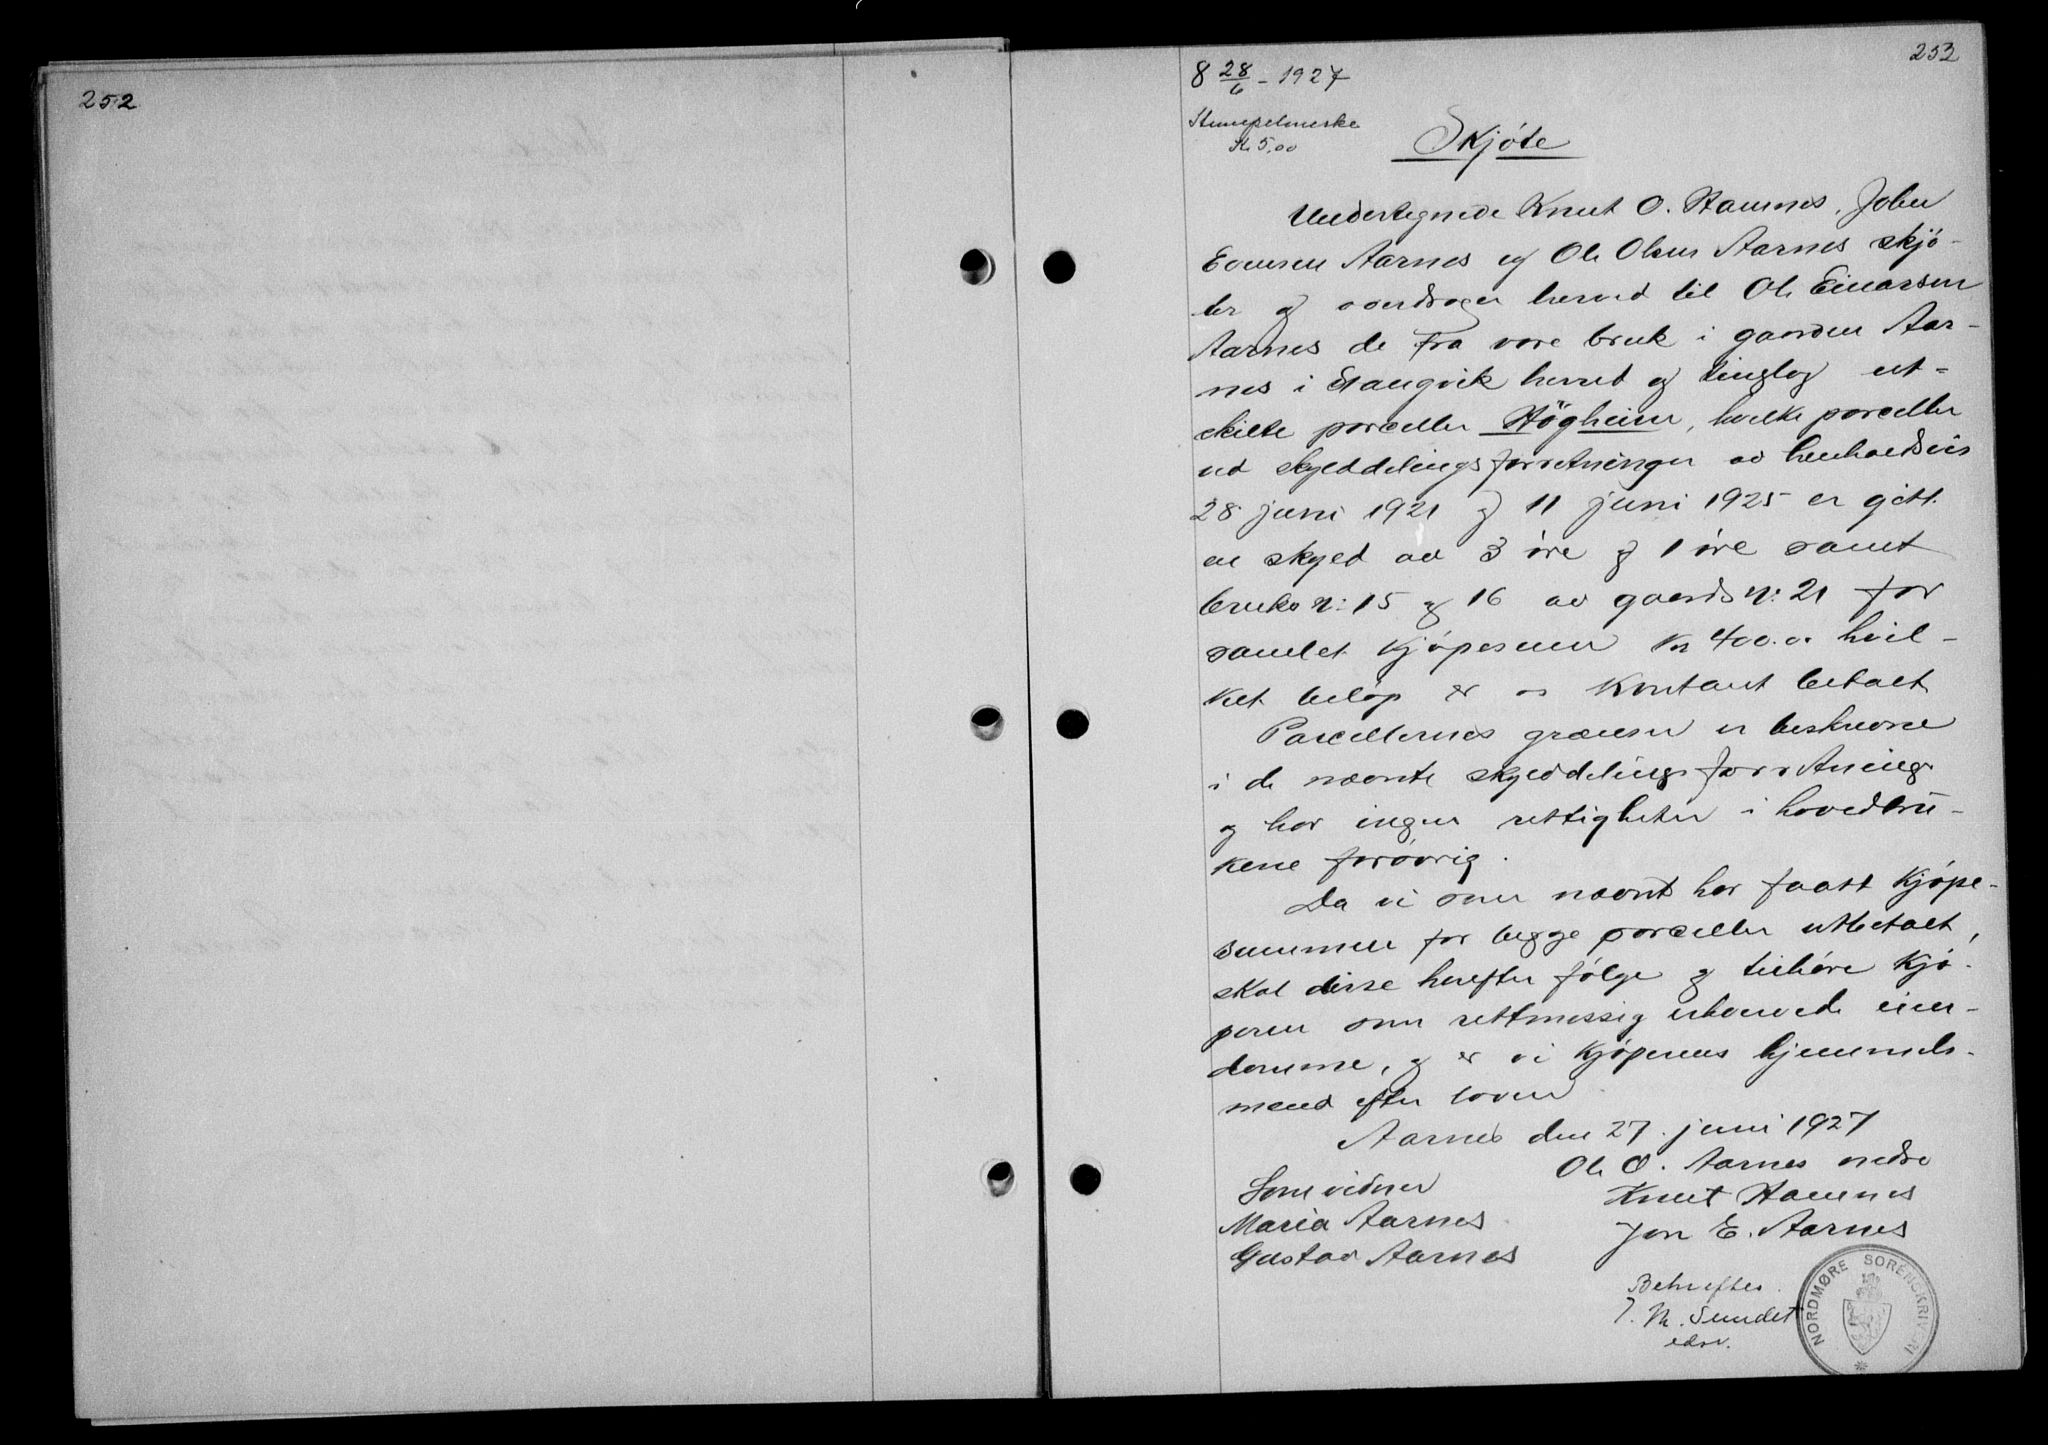 252
253
8 28/6 - 1927
Stempelmerke
Kr 5,00
Skjøte
Undertegnede Knut O. Hamnes, John
Evensen Aarnes og Ole Olsen Aarnes skjø-
ter og overdrager herved til Ole Einarsen
Aarnes de fra vore bruk i gaarden Aar-
nes i Stangvik herred og tinglag ut-
skilte parceller Høgheim, hvilke parceller
ved skylddelingsforretninger av henholdsvis
28 juni 1921 og 11 juni 1925 er git
en skyld av 3 øre og 1 øre samt
bruks nr: 15 og 16 av gaards nr: 21 for
samlet kjøpesum kr 400.00 hvil-
ket beløp er os kontant betalt
Parcellernes grænser er beskrevne
i de nævnte skylddelingsforretning
og har ingen rettigheter i hovedbru-
kene forøvrig.
Da vi som nævnt har faatt kjøpe-
summen for begge parceller utbetalt,
skal disse herefter følge og tilhøre kjø-
peren som rettmessig erhvervede eien-
domme, og er vi kjøperens hjemmels-
mænd efter loven
Aarnes den 27. juni 1927
Ole O. Aarnes nedre
Som vidner
Knut Hamnes
Maria Aarnes
Jon E. Aarnes
Gustav Aarnes
Bekreftes.
M. Sundet
edsv.
NORDMØRE SORENSKRIVERI